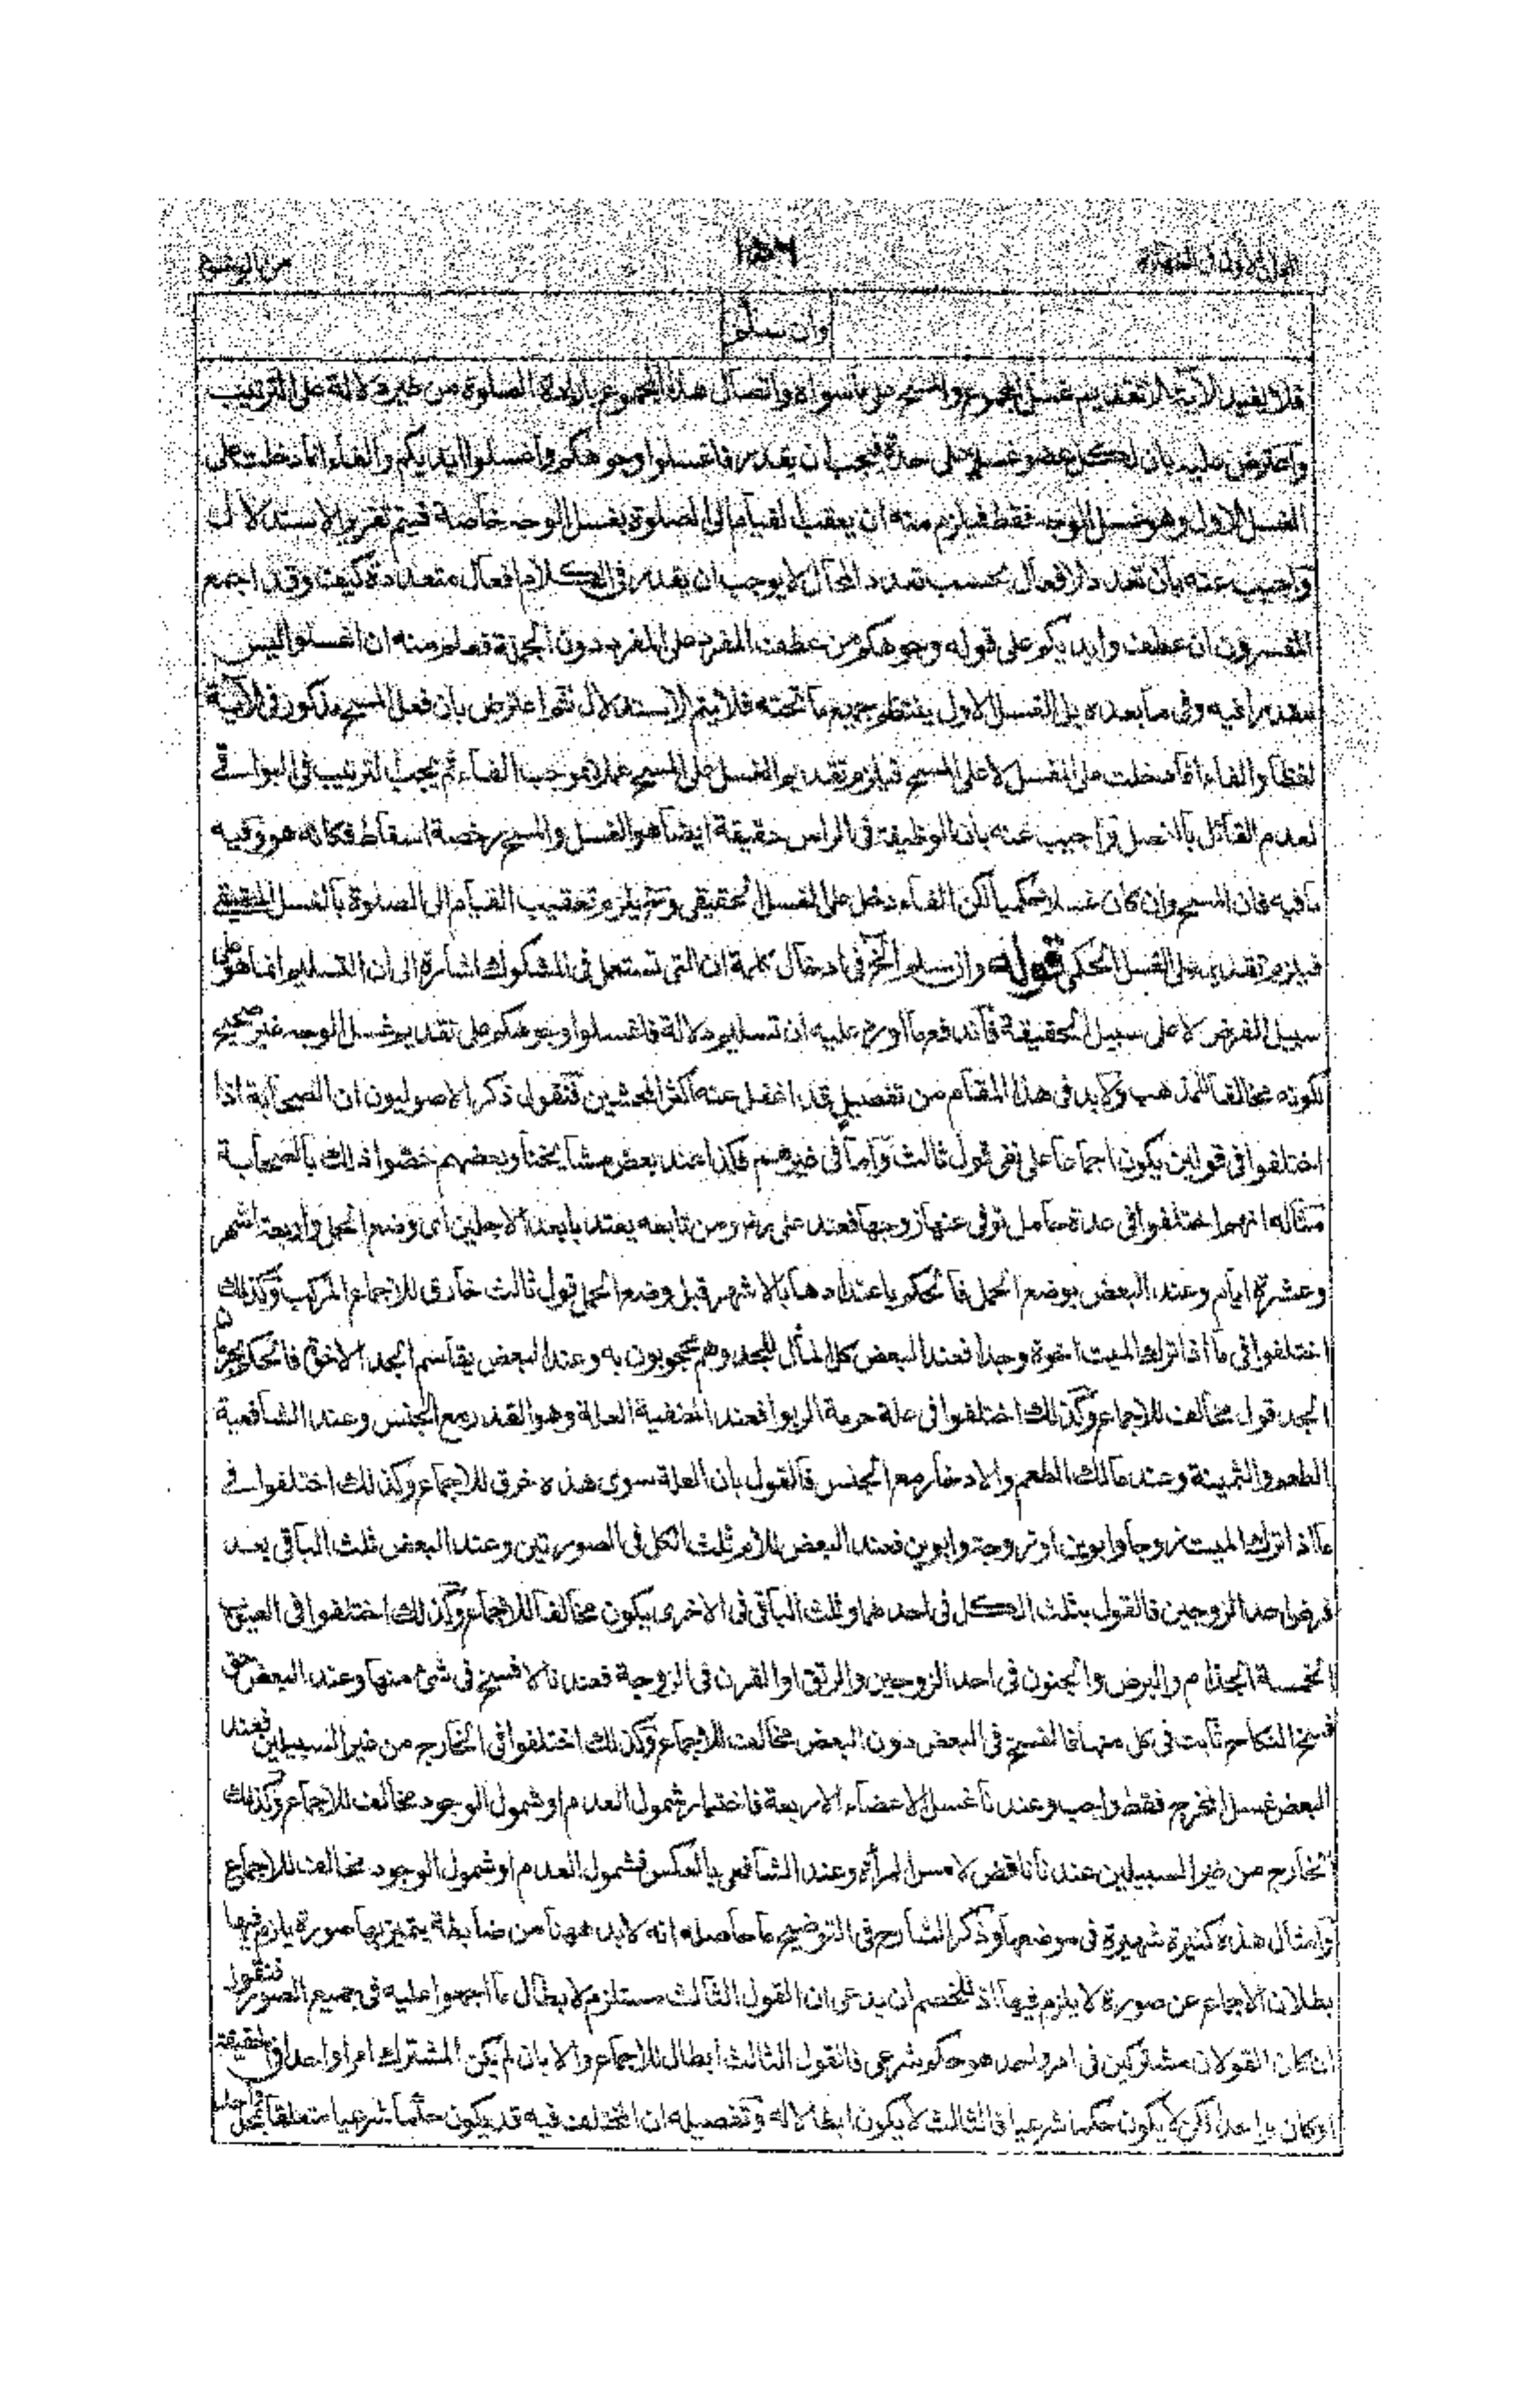 ١٥٦
وان سلم
فلا يفيد الآية الا تقديم غسل المجموع والمسح على ما سواه واتصال هذا المجموع بارادة الصلوة من غير دلالة على الترتيب
واعترض عليه بان لكل عضو غسل على حدة فيجب ان يقدر فاغسلوا وجوهكم واغسلوا ايديكم والفاء انما دخلت على
الغسل الاول وهو غسل الوجه فقط فيلزم منه ان يعقب القيام الى الصلوة بغسل الوجه خاصة فيتم تقرير الاستدلال
واجيب عنه بان تعدد الافعال بحسب تعدد المحال لا يوجب ان يقدر في الكلام افعال متعددة كيف وقد اجمع
المفسرون ان عطف وايديكم على قوله وجوهكم من عطف المفرد على المفرد دون الجملة فعلم منه ان اغسلوا ليس
مقدرا فيه وفى ما بعده بل الغسل الاول ينتظم جميع ما تحته فلا يتم الاستدلال ثم اعترض بان فعل المسح مذكور في الآية
لفظا والفاء انما دخلت على الغسل لا على المسح فيلزم تقديم الغسل على المسح عملا بموجب الفاء ثم يجب الترتيب في البواقي
لعدم القائل بالفصل واجيب عنه بان الوظيفة في الراس حقيقة ايضا هو الغسل والمسح رخصة اسقاط فكانه هو وفيه
ما فيه فان المسح وان كان غسلا حكميا لكن الفاء دخل على الغسل الحقيقى وثم يلزم تعقيب القيام الى الصلوة بالغسل الحقيقي
فيلزم تقديمه على الغسل الحكمى قوله وان سلم الخ في ادخال كلمة ان التى تستعمل في المشكوك اشارة الى ان التسليم انما هو على
سبيل الفرض لا على سبيل الحقيقة فاندفع ما اورد عليه ان تسليم دلالة فاغسلوا وجوهكم على تقديم غسل الوجه غير صحيح
لكونه مخالفا للمذهب ولابد في هذا المقام من تفصيل قد اغفل عنه اكثر المحشين فنقول ذكر الاصوليون ان الصحابة اذا
اختلفوا في قولين يكون اجماعا على نفى قول ثالث واما في غيرهم فكذا عند بعض مشايخنا وبعضهم خصوا ذلك بالصحابة
مثاله انهم اختلفوا في عدة حامل توفى عنها زوجها فعند على رض ومن تابعه يعتد بابعد الاجلين اى وضع الحمل واربعة اشهر
وعشرة ايام وعند البعض بوضع الحمل فالحكم باعتدادها بالاشهر قبل وضع الحمل قول ثالث خارق للاجماع المركب وكذلك
اختلفوا في ما اذا ترك الميت اخوة وجدا فعند البعض كل المال للجد وهم محجوبون به وعند البعض يقاسم الجد الاخوة فالحكم بحرمان
الجد قول مخالف للاجماع وكذلك اختلفوا في علة حرمة الربوا فعند الحنفية العلة وهو القدر مع الجنس وعند الشافعية
الطعم والثمينة وعند مالك الطعم والادخار مع الجنس فالقول بان العلة سوى هذه خرق للاجماع وكذلك اختلفوا في
ما اذا ترك الميت زوجا وابوين او زوجة وابوين فعند البعض للام ثلث الكل في الصورتين وعند البعض ثلث الباقى بعد
فرض احد الزوجين فالقول بثلث الكل في احدهما وثلث الباقى في الاخرى يكون مخالفا للاجماع وكذلك اختلفوا في العيوب
الخمسة الجذام والبرص والجنون في احد الزوجين والرتق او القرن في الزوجة فعندنا لا فسخ في شئ منها وعند البعض حق
فسخ النكاح ثابت في كل منها فالفسخ في البعض دون البعض مخالف للاجماع وكذلك اختلفوا في الخارج من غير السبيلين فعند
البعض غسل المخرج فقط واجب وعندنا غسل الاعضاء الاربعة فاختيار شمول العدم او شمول الوجود مخالف للاجماع وكذلك
الخارج من غير السبيلين عندنا ناقض لا مس المرأة وعند الشافعي بالعكس فشمول العدم او شمول الوجود مخالف للاجماع
وامثال هذه كثيرة شهيرة في موضعها وذكر الشارح في التوضيح ما حاصله انه لابد ههنا من ضابطة يتميز بها صورة يلزم فيها
بطلان الاجماع عن صورة لا يلزم فيها اذ للخصم ان يدعى ان القول الثالث مستلزم لابطال ما اجمعوا عليه في جميع الصور فنقول
ان كان القولان مشتركين في امر واحد هو حكم شرعى فالقول الثالث ابطال للاجماع والا بان لم يكن المشترك امرا واحدا في الحقيقة
او كان واحدا لكن لا يكون حكما شرعيا فالثالث لا يكون ابطالا له وتفصيله ان المختلف فيه قد يكون حكما شرعيا متعلقا بمحل واحد